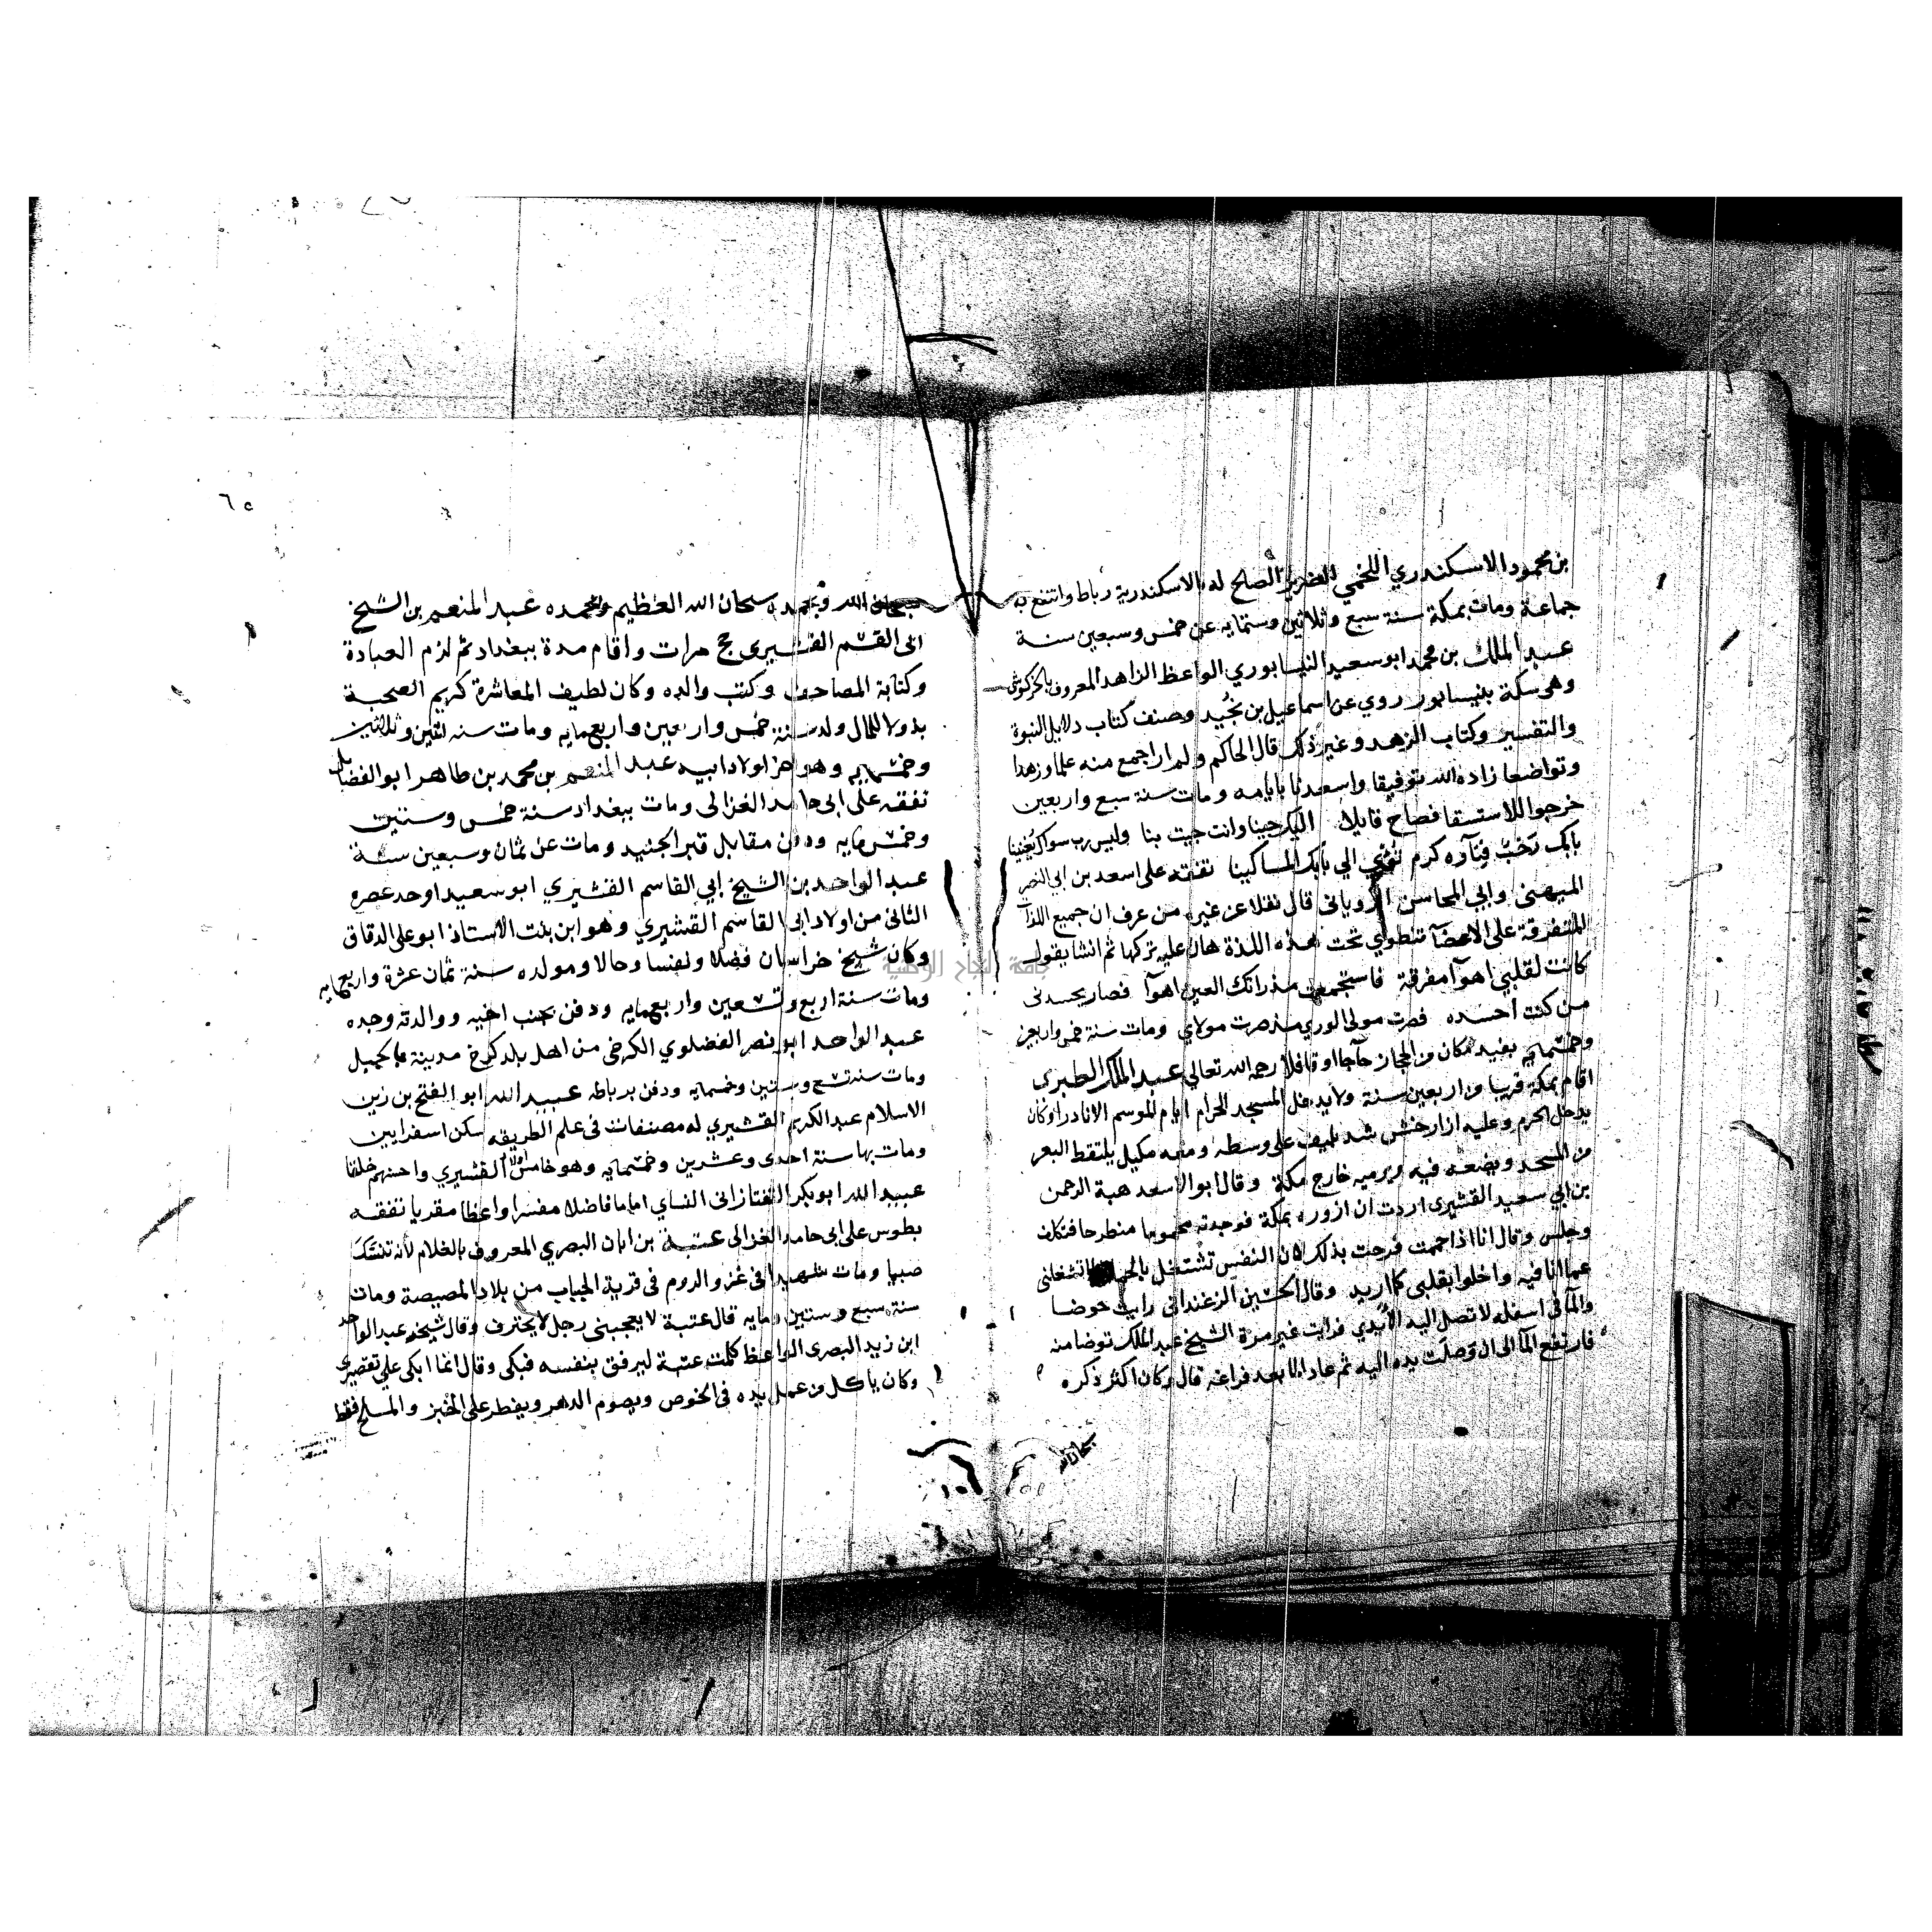 بن محمود الاسكندري اللخمي الصلح له بالاسكندرية رباط وانتفع به
جماعة ومات بمكة سنة سبع وثلاثين وستمايه عن خمس وسبعين سنة
عبد الملك بن محمد ابو سعيد النيسابوري الواعظ الزاهد المعروف بالخركوشي
وهى سكة بنيسابور روي عن اسماعيل بن نجيد وصنف كتاب دلايل النبوة
والتفسير وكتاب الزهد وغير ذلك قال الحاكم ولم ار اجمع منه علما وزهدا
وتواضعا زاده الله توفيقا واسعدنا بايامه ومات سنة سبع واربعين
خرجوا للاستسقا فصاح قايلا اليك جينا وانت جيت بنا وليس رب سواك يغنينا
بابك كرم الي بابك المساكينا تفقه على اسعد بن ابي النصر
الميهنى وابي المحاسن الروياني قال نقلا عن غيره من عرف ان جميع اللذات
المتفرقة على الاعضآ تنطوي تحت هذه اللذة هان عليه تركها ثم انشا يقول
كانت لقلبي اهوآ مفرقة فاستجمعت مذ راتك العين اهوآ فصار يحسدني
من كنت احسده فصرت مولى الوري مذ صرت مولاي ومات سنة خمس واربعين
وخمسمايه بفيد مكان من الحجاز حآجا او قافلا رحمه الله تعالي عبد الملك الطبري
اقام بمكة قريبا من اربعين سنة ولا يدخل المسجد الحرام ايام الموسم الا نادرا وكان
يدخل الحرم وعليه ازار خشن شد بليف على وسطه ومعه مكيل يلتقط البعر
من المسجد ويضعه فيه ويرميه خارج مكة وقال ابو الاسعد هبة الرحمن
بن ابي سعيد القشيري اردت ان ازوره بمكة فوجدته محموما منطرحا فتكلف
وجلس وقال انا اذا حممت فرحت بذلك لان النفس تشتغل بالحمى تشغلنى
عما انا فيه واخلوا بقلبي كما اريد وقال الحسين الزغنداني رايت حوضا
والمآ في اسفله لا تصل اليه الايدي فرايت غير مرة الشيخ عبد الملك توضا منه
فارتفع المآ الى ان وصلت يده اليه ثم عاد المآ بعد فراغه قال وكان اكثر ذكره
سبحان الله
٦٥
سبحان الله وبحمده سبحان الله العظيم وبحمده عبد المنعم بن الشيخ
ابى القسم القشيري حج مرات واقام مدة ببغداد ثم لزم العبادة
وكتابة المصاحف وكتب والده وكان لطيف المعاشرة كريم الصحبة
بذولا للمال ولد سنة خمس واربعين واربعمايه ومات سنه اثنين وثلاثين
وخمسمايه وهو اخر اولاد ابيه عبد المنعم بن محمد بن طاهر ابو الفضايل
تفقه على ابى حامد الغزالى ومات ببغداد سنة خمس وستين
وخمسمايه ودفن مقابل قبر الجنيد ومات عن ثمان وسبعين سنة
عبد الواحد بن الشيخ ابي القاسم القشيري ابو سعيد اوحد عصره
الثانى من اولاد ابى القاسم القشيري وهو ابن بنت الاستاذ ابو على الدقاق
وكان شيخ خراسان فضلا ونفسا وحالا ومولده سنة ثمان عشرة واربعمايه
ومات سنة اربع وتسعين واربعمايه ودفن بجنب اخيه ووالدته وجده
عبد الواحد ابو نصر الفضلوي الكرخي من اهل بلد كرخ مدينة بالجبل
ومات سنه تسع وستين وخمسمايه ودفن برباطه عبيد الله ابو الفتح بن زين
الاسلام عبد الكريم القشيري له مصنفات في علم الطريقه سكن اسفرايين
ومات بها سنة احدى وعشرين وخمسمايه وهو خامس اولاد القشيري واحسنهم خلقا
عبيد الله ابو بكر التفتازانى النساي اماما فاضلا مفسرا واعظا مقريا تفقه
بطوس على ابى حامد الغزالى عتبة بن ابان البصري المعروف بالغلام لأنه تنسك
صبيا ومات شهيدا في غزو الروم في قرية الحباب من بلاد المصيصة ومات
سنة سبع وستين ومايه قال عتبة لا يعجبنى رجل لا يحترف وقال شيخه عبد الواحد
ابن زيد البصرى الواعظ كلمت عتبة ليرفق بنفسه فبكى وقال انما ابكى علي تقصيرى
وكان ياكل من عمل يده في الخوص ويصوم الدهر ويفطر على الخبز والملح فقط
جامعة النجاح الوطنية